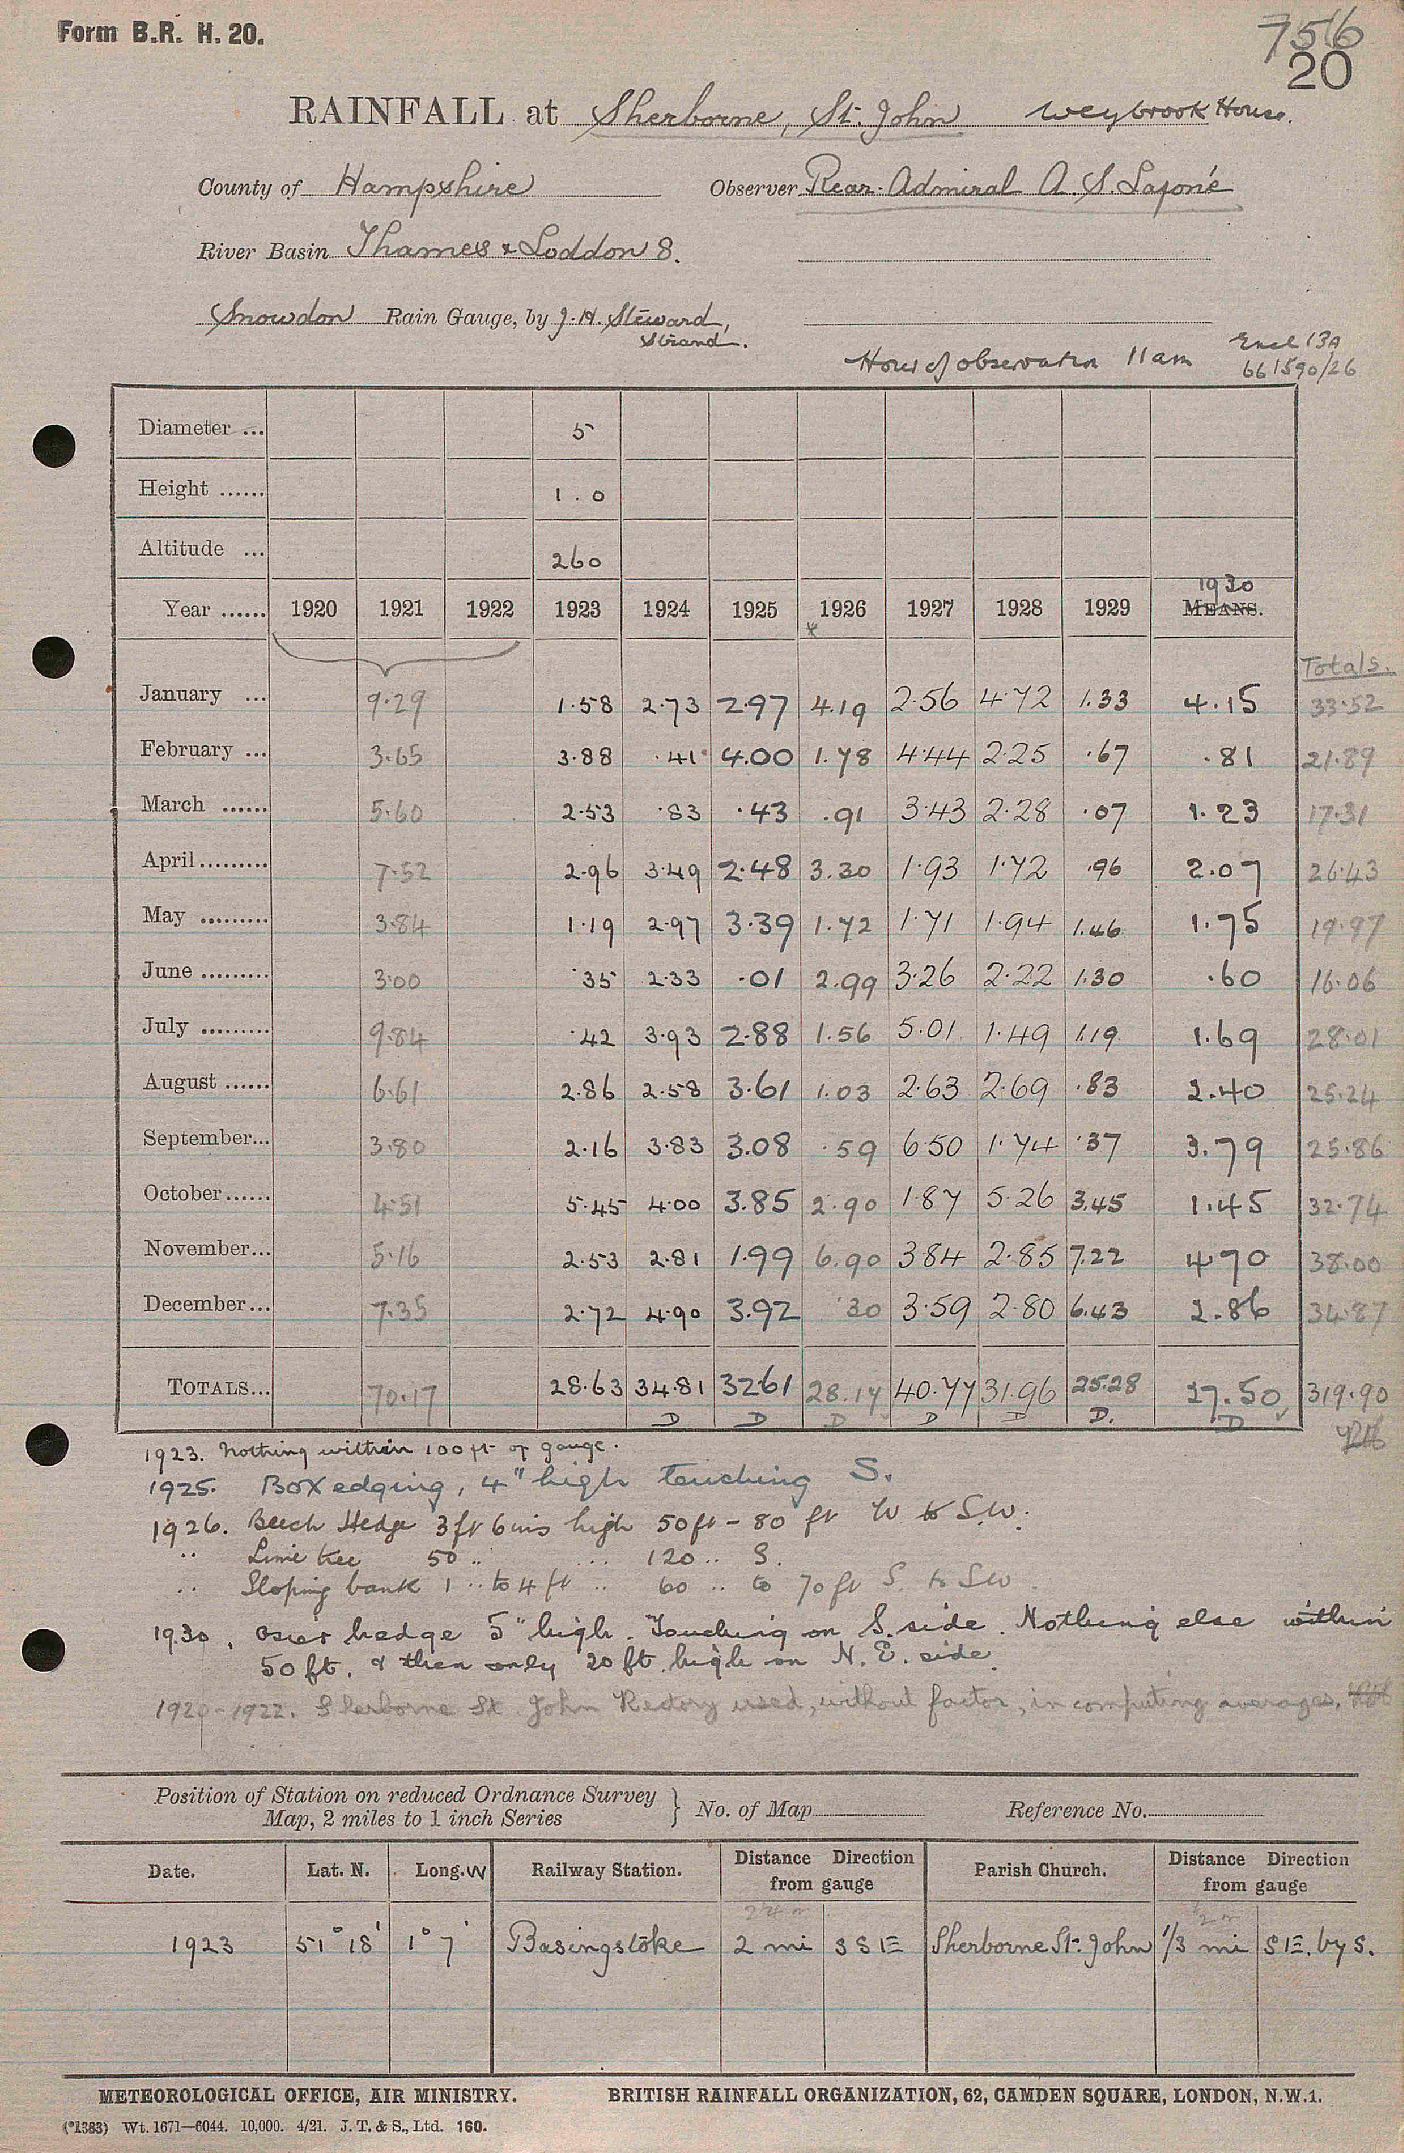 Form B.R. H. 20.
7516
20
RAINFALL at Sherborne, St. John Weybrook House.
County of Hampshire Observer Rear-Admiral A. S. Lafoné
River Basin Thames & Loddon 8.
Snowdon Rain Gauge, by J. H. Steward, Strand.
Hour of observation 11 am Encl 13A 661590/26
Diameter ... 5
Height ...... 1.0
Altitude ... 260
1930
Year ...... 1920 1921 1922 1923 1924 1925 1926 1927 1928 1929 MEANS.
Totals.
January ... 9.29 1.58 2.73 2.97 4.19 2.56 4.72 1.33 4.15 33.52
February ... 3.65 3.88 .41 4.00 1.78 4.44 2.25 .67 .81 21.89
March ...... 5.60 2.53 .83 .43 .91 3.43 2.28 .07 1.23 17.31
April ......... 7.52 2.96 3.49 2.48 3.30 1.93 1.72 .96 2.07 26.43
May ......... 3.84 1.19 2.97 3.39 1.72 1.71 1.94 1.46 1.75 19.97
June ......... 3.00 .35 2.33 .01 2.99 3.26 2.22 1.30 .60 16.06
July ......... 9.84 .42 3.93 2.88 1.56 5.01 1.49 1.19 1.69 28.01
August ...... 6.61 2.86 2.58 3.61 1.03 2.63 2.69 .83 2.40 25.24
September... 3.80 2.16 3.83 3.08 .59 6.50 1.74 .37 3.79 25.86
October...... 4.51 5.45 4.00 3.85 2.90 1.87 5.26 3.45 1.45 32.74
November... 5.16 2.53 2.81 1.99 6.90 3.84 2.85 7.22 4.70 38.00
December... 7.35 2.72 4.90 3.92 .30 3.59 2.80 6.43 2.86 34.87
TOTALS... 70.17 28.63 34.81 32.61 28.17 40.77 31.96 25.28 27.50 319.90
D D D D D D. D
1923. Nothing within 100 ft of gauge.
1925. Box edging, 4" high touching S.
1926. Beech Hedge 3ft 6ins high 50ft - 80 ft W to S.W.
" Lime tree 50 " " 120 " S.
" Sloping bank 1 " to 4 ft " 60 " to 70 ft S. to SW.
1930, Osier hedge 5" high. Touching on S. side. Nothing else within
50 ft. & then only 20 ft. high on N. E. side.
1920-1922. Sherborne St John Rectory used, without factor, in computing averages.
Position of Station on reduced Ordnance Survey
Map, 2 miles to 1 inch Series } No. of Map Reference No.
Date. Lat. N. Long. W Railway Station. Distance Direction from gauge Parish Church. Distance Direction from gauge
1923 51° 18' 1° 7' Basingstoke 2 mi S S E Sherborne St. John 1/3 mi S E. by S.
METEOROLOGICAL OFFICE, AIR MINISTRY. BRITISH RAINFALL ORGANIZATION, 62, CAMDEN SQUARE, LONDON, N.W.1.
(*1383) Wt. 1671—6044. 10,000. 4/21. J. T. & S., Ltd. 160.